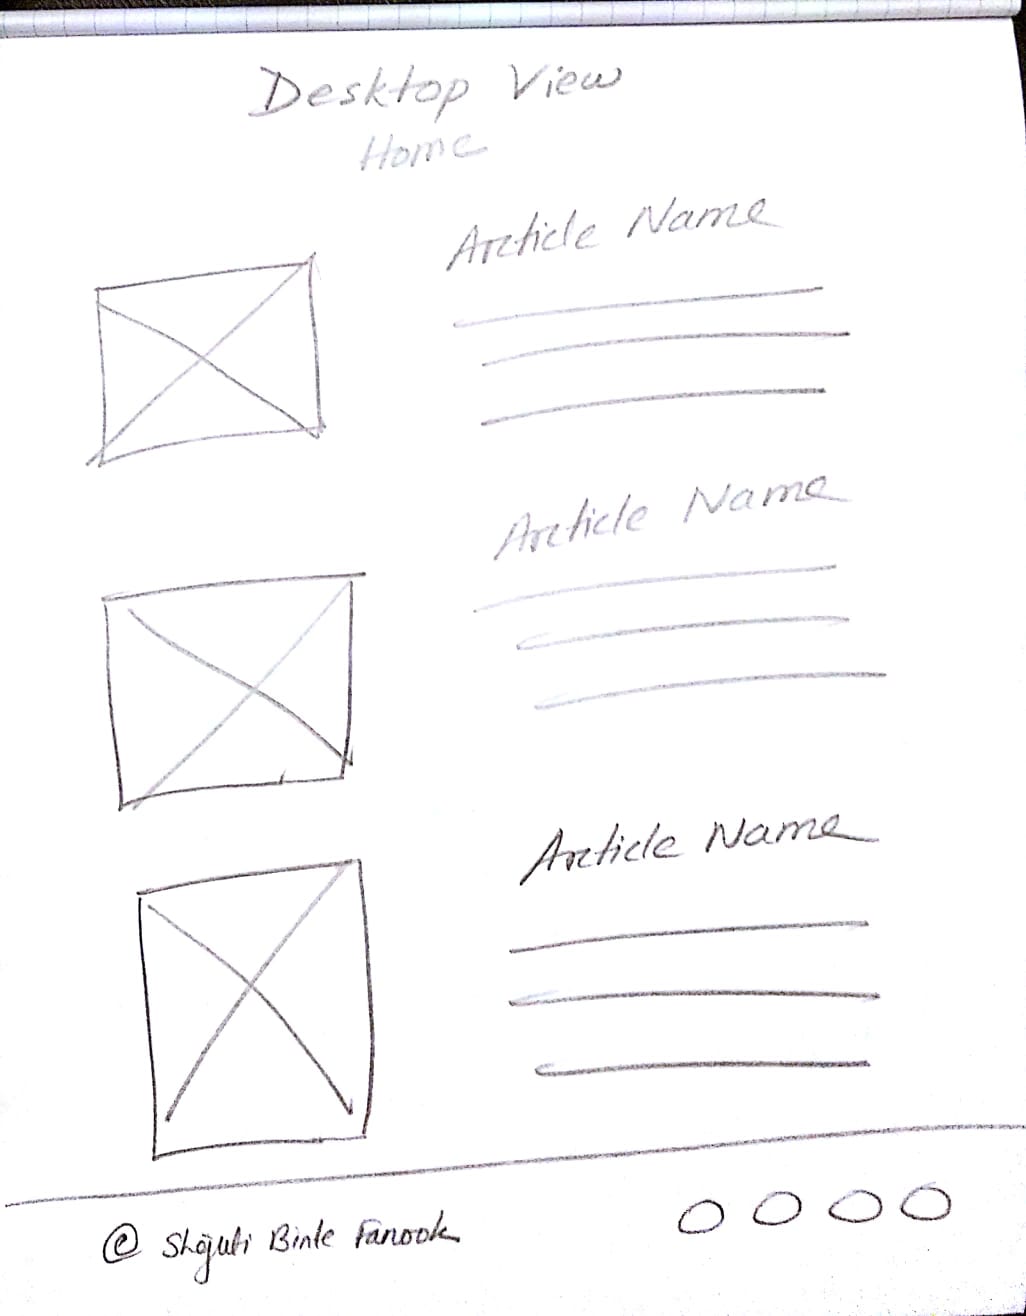 Desktop View
Home
Article Name
Article Name
Article Name
© Binte